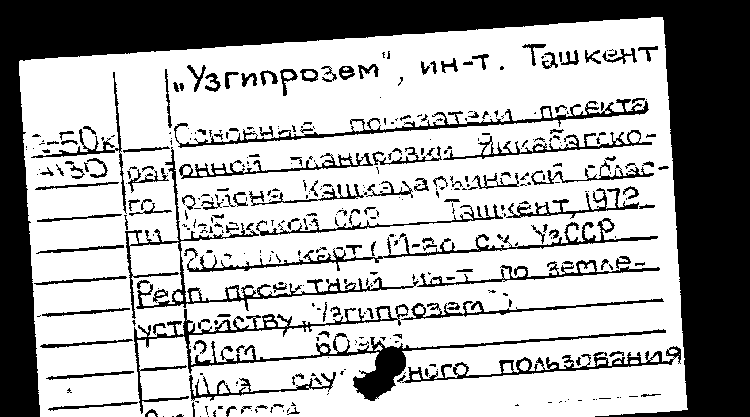 „Узгипрозем", ин-т. Ташкент
-50к Основные показатели проекта
130 районной планировки Яккабагско-
го района Кашкадарьинской облас-
ти Узбекской ССР Ташкент, 1972
20с., ил. карт (М-во с.х. УзССР
Респ. проектный ин-т по земле-
устройству „Узгипрозем")
21см. 60 экз.
Для служебного пользования